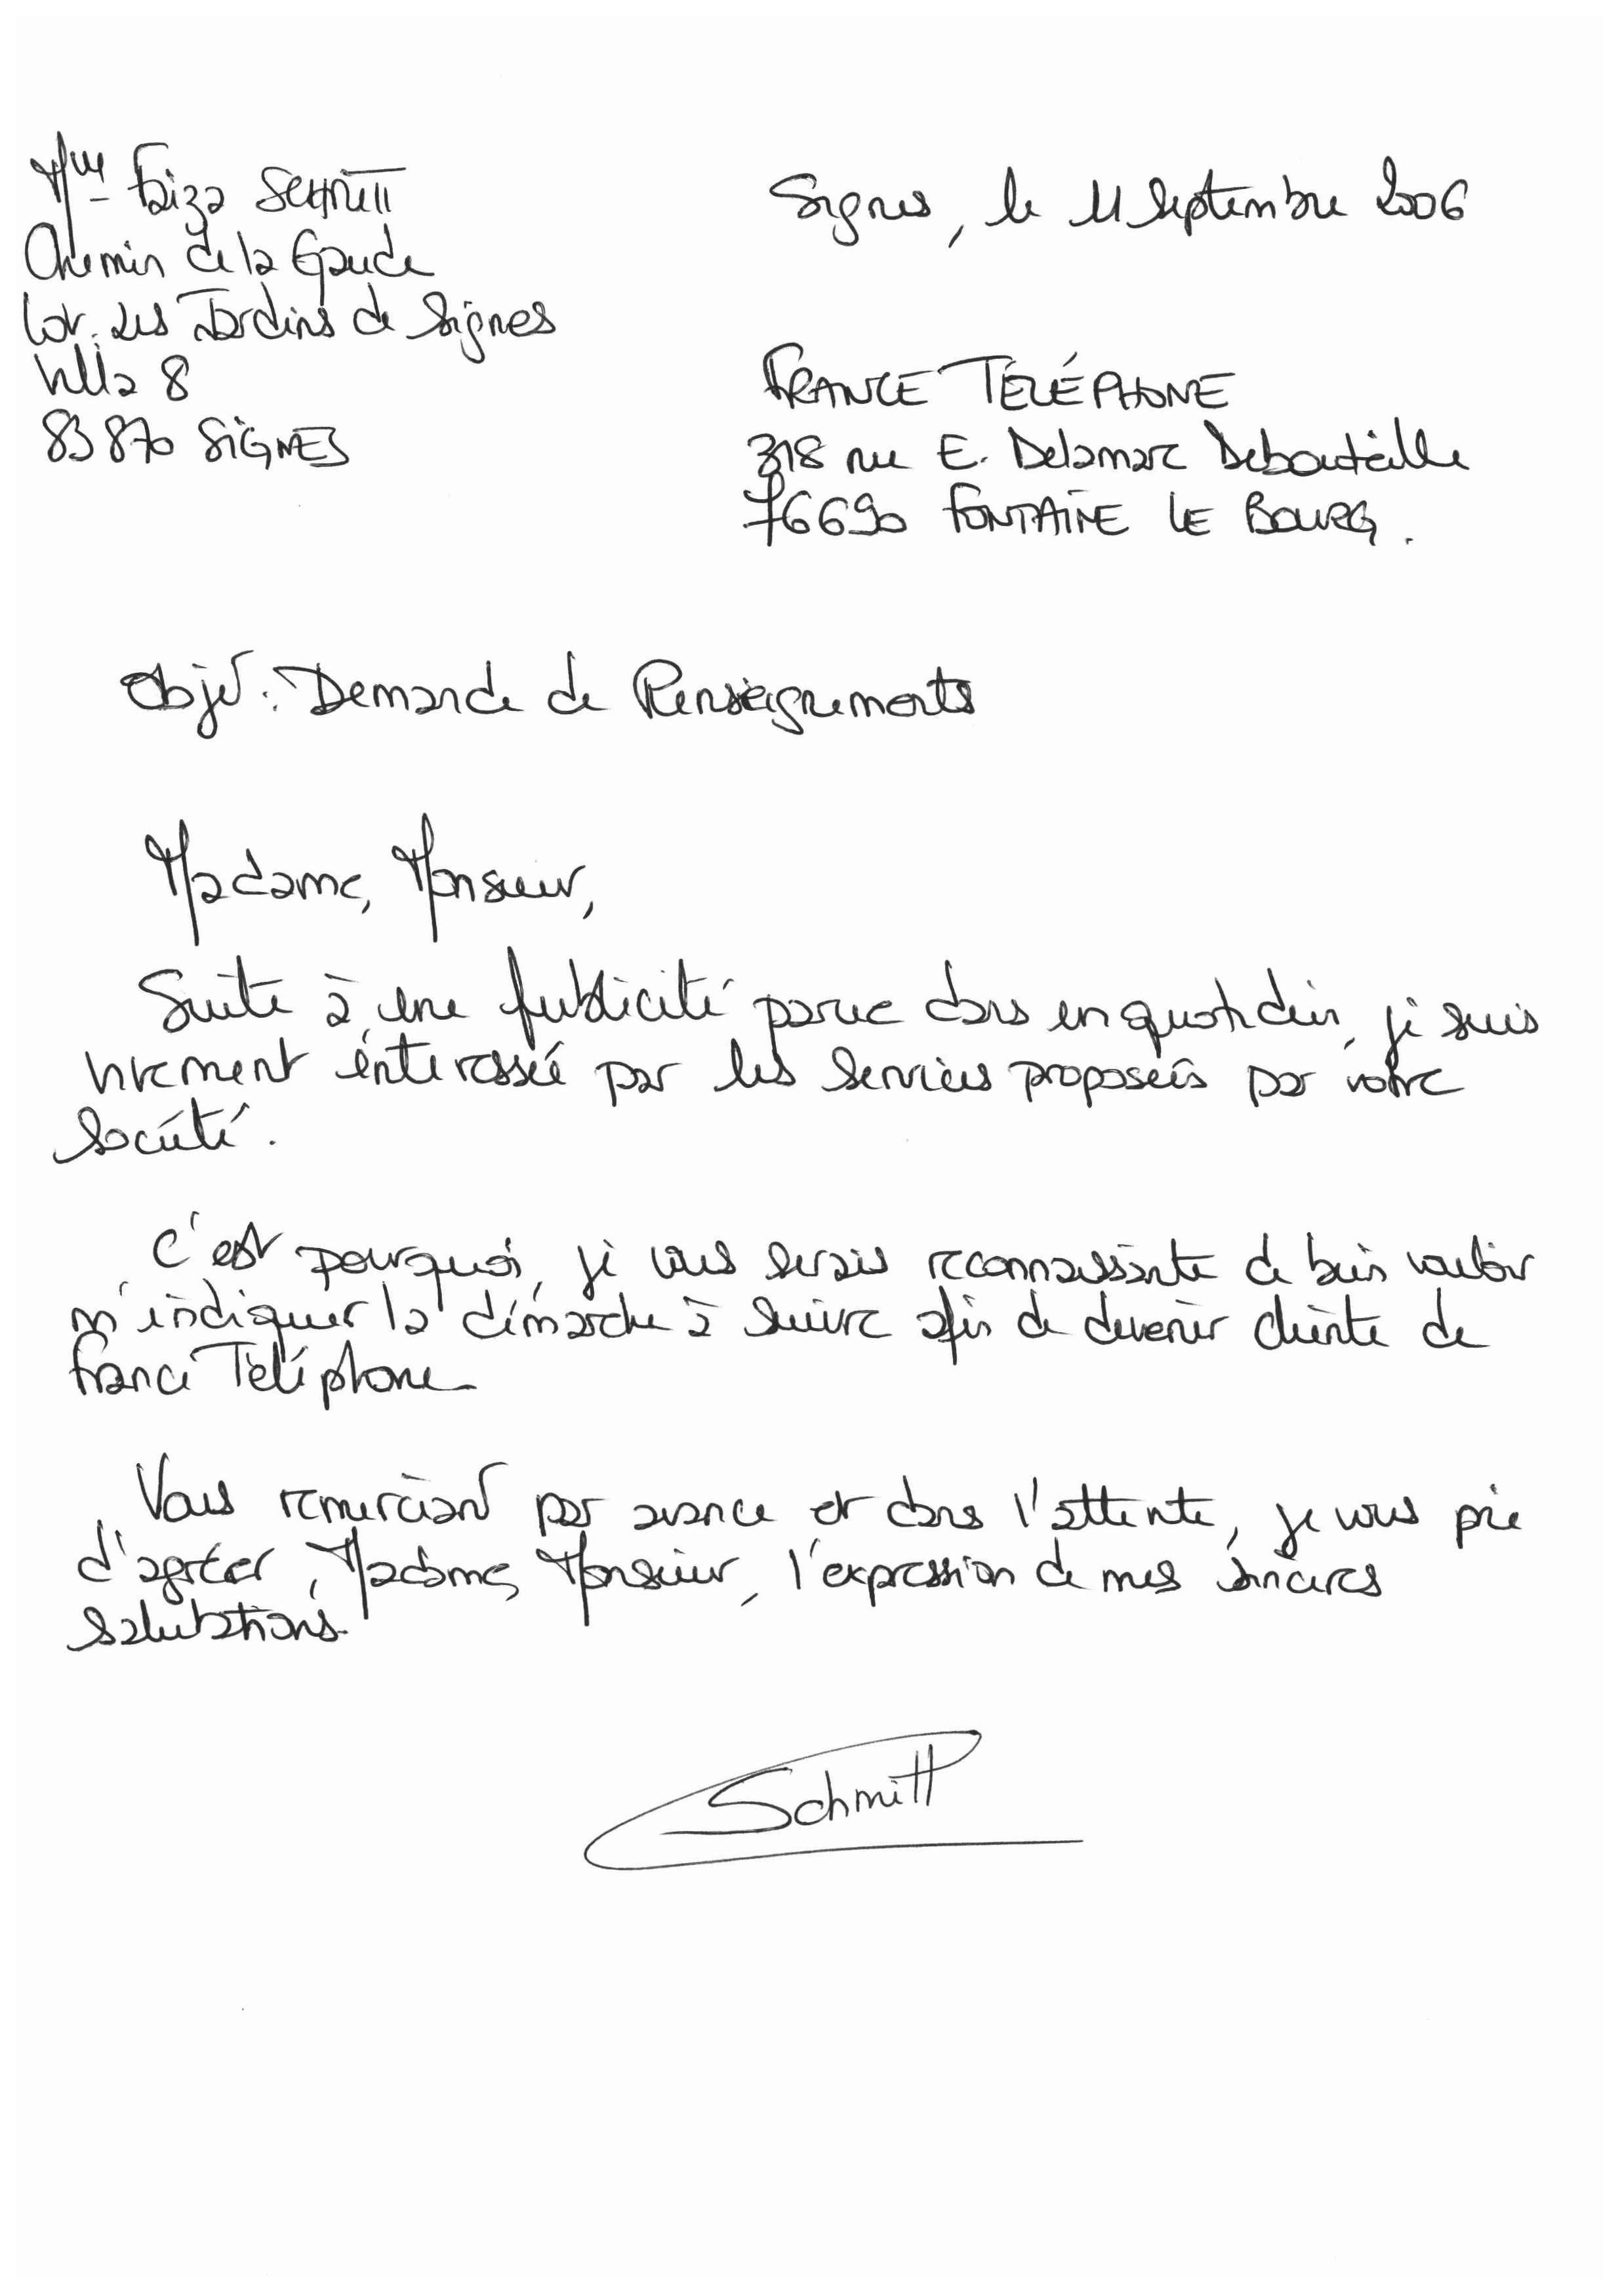 Mme Faiza SCHMITT
Chemin de la Gaude
Lot. Les Jardins de Signes
Villa 8
83870 SIGNES
Signes, le 11 Septembre 2006
FRANCE TÉLÉPHONE
318 rue E. Delamare Debouteille
76690 FONTAINE LE BOURG.
Objet : Demande de Renseignements
Madame, Monsieur,
Suite à une publicité parue dans un quotidien, je suis
vivement intéressée par les services proposés par votre
société.
C'est pourquoi, je vous serais reconnaissante de bien vouloir
m'indiquer la démarche à suivre afin de devenir cliente de
France Téléphone
Vous remerciant par avance et dans l'attente, je vous prie
d'agréer, Madame, Monsieur, l'expression de mes sincères
salutations.
Schmitt